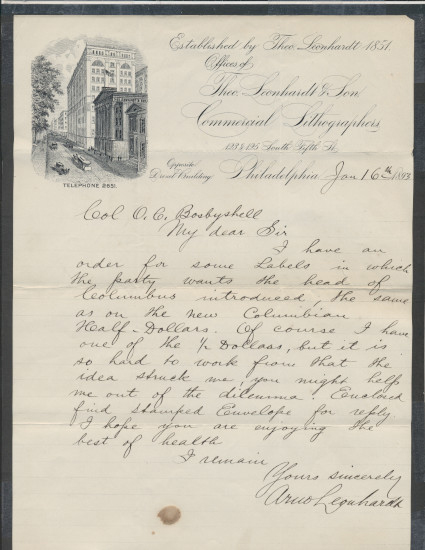 Established by Theo. Leonhardt 1851.
Offices of
Theo. Leonhardt & Son
Commercial Lithographers
193 & 195 South Fifth St.
Opposite
Drexel Building
Philadelphia, Jan 16th 1893
TELEPHONE 2651.
Col O. C. Bosbyshell
My dear Sir
I have an
order for some Labels in which
the party wants the head of
Columbus introduced, the same
as on the new Columbian
Half-Dollars. Of course I have
one of the 1/2 Dollars, but it is
so hard to work from that the
idea struck me, you might help
me out of the dilemma. Enclosed
find stamped Envelope for reply
I hope you are enjoying the
best of health
I remain
Yours sincerely
Arno Leonhardt